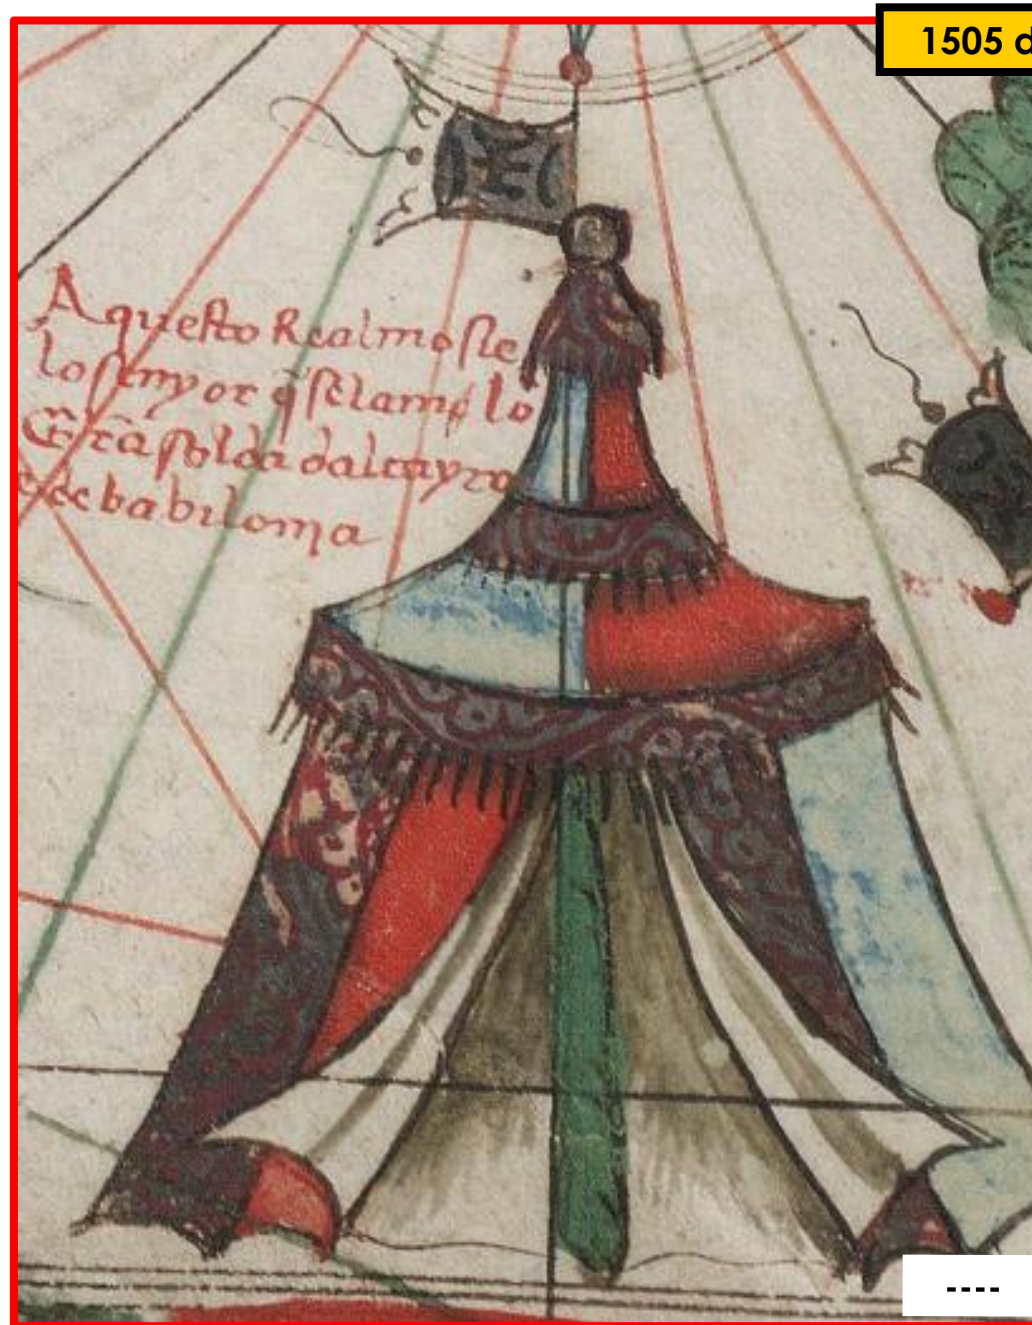 1505 d
Aquesto Realmo sie
lo senyor q̃ se lama lo
Gr̃a soldã dalcayro
e de babilonia
----